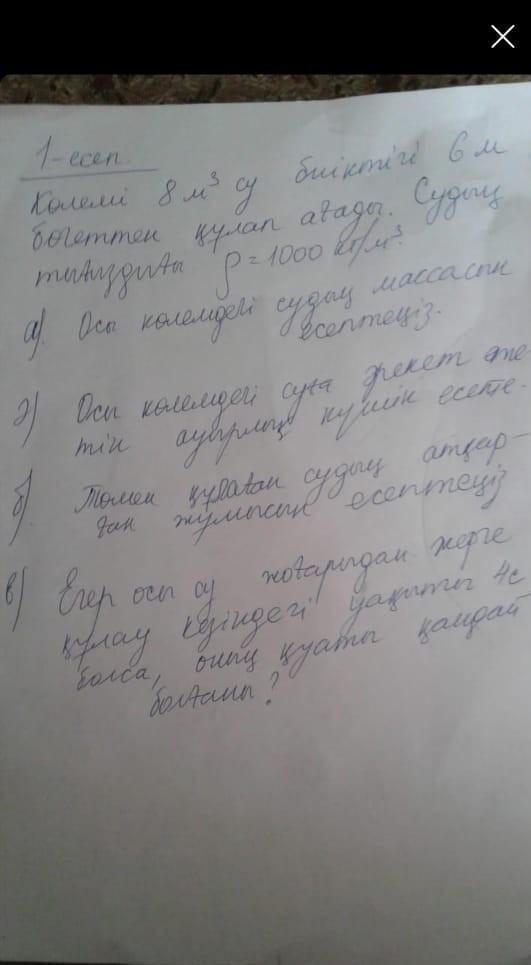 1-есеп.
Көлемі 8 м³ су биіктігі 6 м
бөгеттен құлап ағады. Судың
тығыздығы ρ = 1000 кг/м³.
а) Осы көлемдегі судың массасын
есептеңіз.
ә) Осы көлемдегі суға әрекет ете-
тін ауырлық күшін есепте-
б) Төмен құлаған судың атқар-
ған жұмысын есептеңіз
в) Егер осы су жоғарыдан жерге
құлау кезіндегі уақыты 4с
болса, оның қуаты қандай
болғаны?